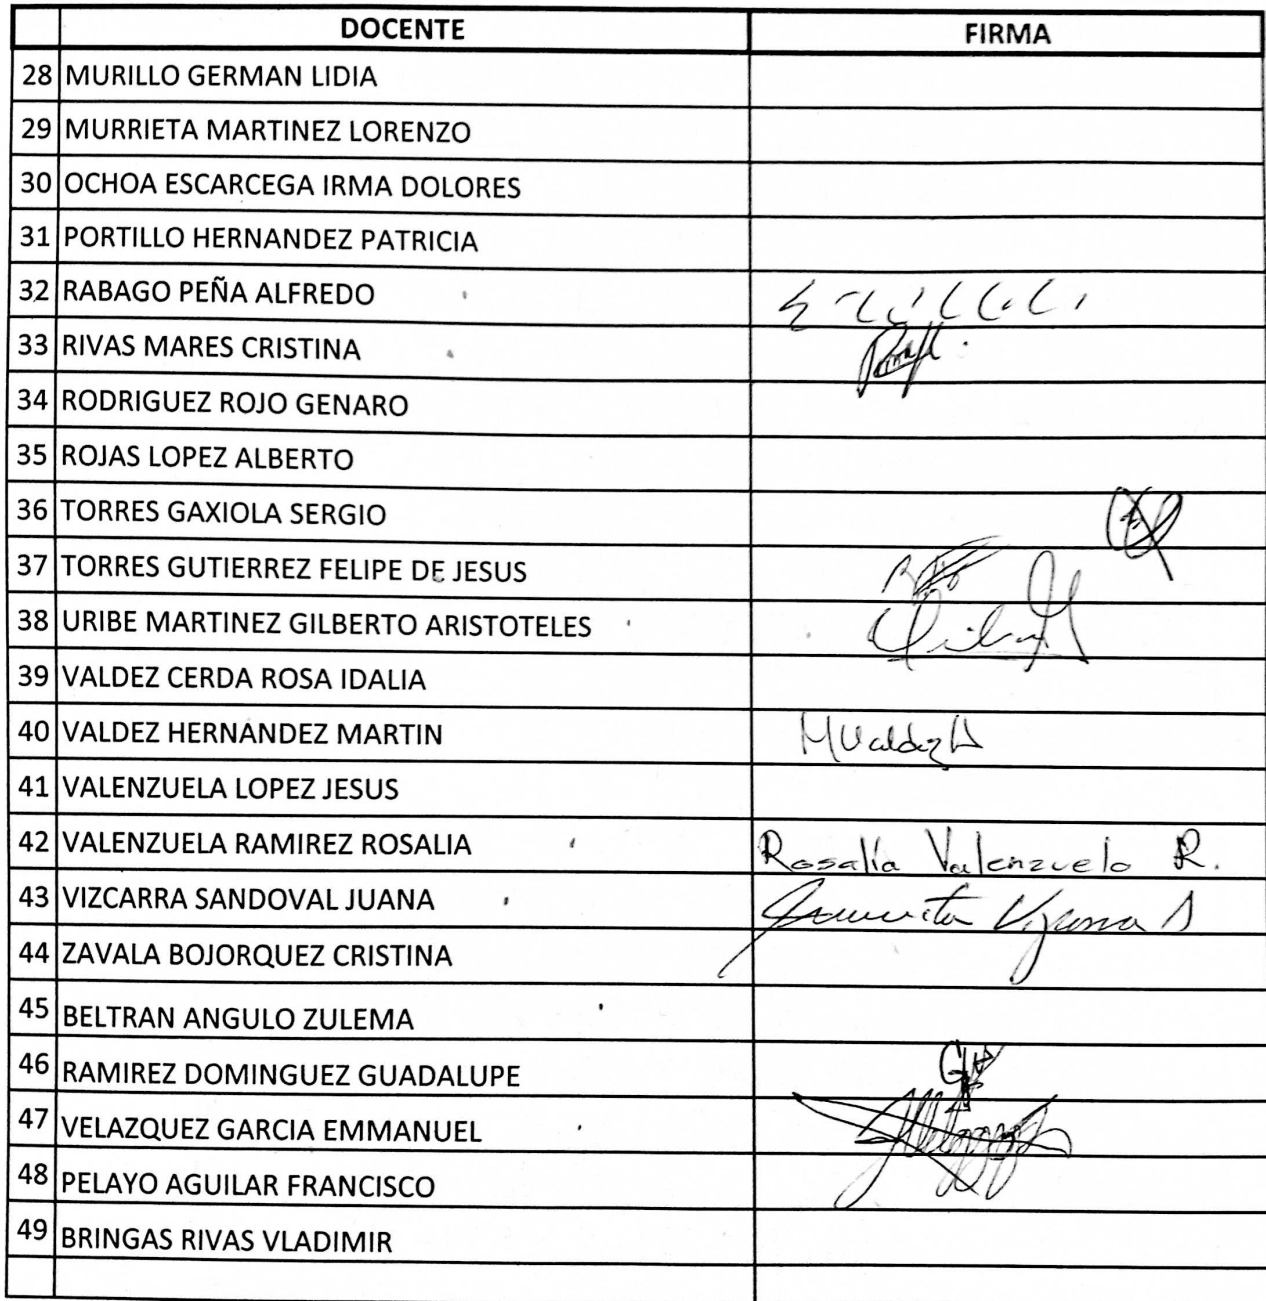 DOCENTE FIRMA
28 MURILLO GERMAN LIDIA
29 MURRIETA MARTINEZ LORENZO
30 OCHOA ESCARCEGA IRMA DOLORES
31 PORTILLO HERNANDEZ PATRICIA
32 RABAGO PEÑA ALFREDO
33 RIVAS MARES CRISTINA
34 RODRIGUEZ ROJO GENARO
35 ROJAS LOPEZ ALBERTO
36 TORRES GAXIOLA SERGIO
37 TORRES GUTIERREZ FELIPE DE JESUS
38 URIBE MARTINEZ GILBERTO ARISTOTELES
39 VALDEZ CERDA ROSA IDALIA
40 VALDEZ HERNANDEZ MARTIN MValdezH
41 VALENZUELA LOPEZ JESUS
42 VALENZUELA RAMIREZ ROSALIA Rosalía Valenzuela R.
43 VIZCARRA SANDOVAL JUANA
44 ZAVALA BOJORQUEZ CRISTINA
45 BELTRAN ANGULO ZULEMA
46 RAMIREZ DOMINGUEZ GUADALUPE
47 VELAZQUEZ GARCIA EMMANUEL
48 PELAYO AGUILAR FRANCISCO
49 BRINGAS RIVAS VLADIMIR